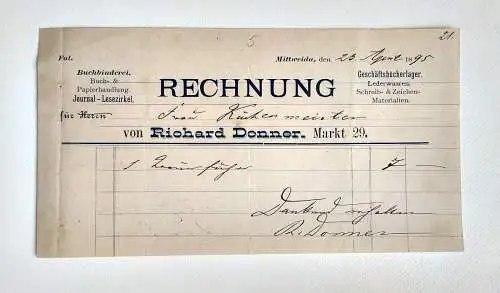 5
21.
Fol.
Mittweida, den 23 April 1895
Buchbinderei,
Buch- &
Papierhandlung.
Journal-Lesezirkel.
RECHNUNG
Geschäftsbücherlager.
Lederwaaren.
Schreib- & Zeichen-
Materialien.
für Herrn Frau Küchenmeister
von Richard Donner. Markt 29.
1 7 —
Dankend erhalten
R. Donner